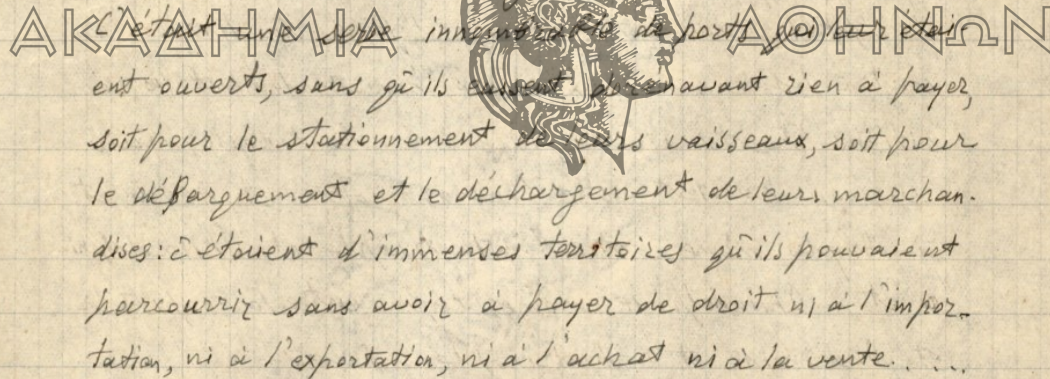 ΑΚΑΔΗΜΙΑ ΑΘΗΝΩΝ
C'était une serie innombrable de ports qui leur étai-
ent ouverts, sans qu'ils eussent dorénavant rien à payer,
soit pour le stationnement de leurs vaisseaux, soit pour
le débarquement et le déchargement de leurs marchan-
dises: c'étaient d'immenses territoires qu'ils pouvaient
parcourrir sans avoir à payer de droit ni à l'impor-
tation, ni à l'exportation, ni à l'achat ni à la vente.....